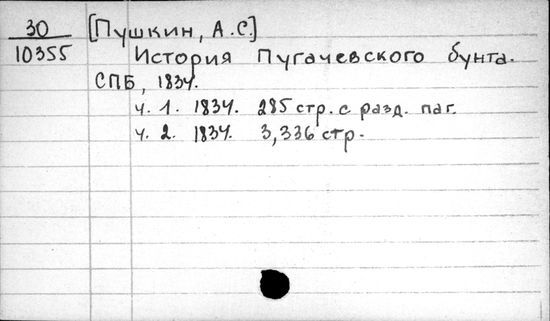 30 [Пушкин, А.С.]
10355 История Пугачевского бунта.
СПБ, 1834.
ч. 1. 1834. 285 стр. с разд. паг.
ч. 2. 1834. 3,336 стр.